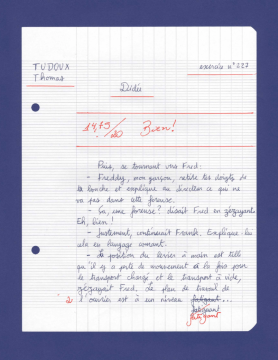 TUDOUX
Thomas
exercice n°227
Dictée
14,75/20 Bien!
Puis, se tournant vers Fred:
- Freddy, mon garçon, retire tes doigts de
ta bouche et explique au directeur ce qui ne
va pas dans cette foreuse.
- Sa, une foreuse? disait Fred en zézayant.
Eh, bien!
- Justement, continuait Frank. Explique lui
cela en langage courant.
- La position du levier à main est telle
qu'il y a perte de mouvement à la fois pour
le transport chargé et le transport à vide,
zézayait Fred. Le plan de travail de
l'ouvrier est à un niveau fatigant...
fatiguant
fatigant